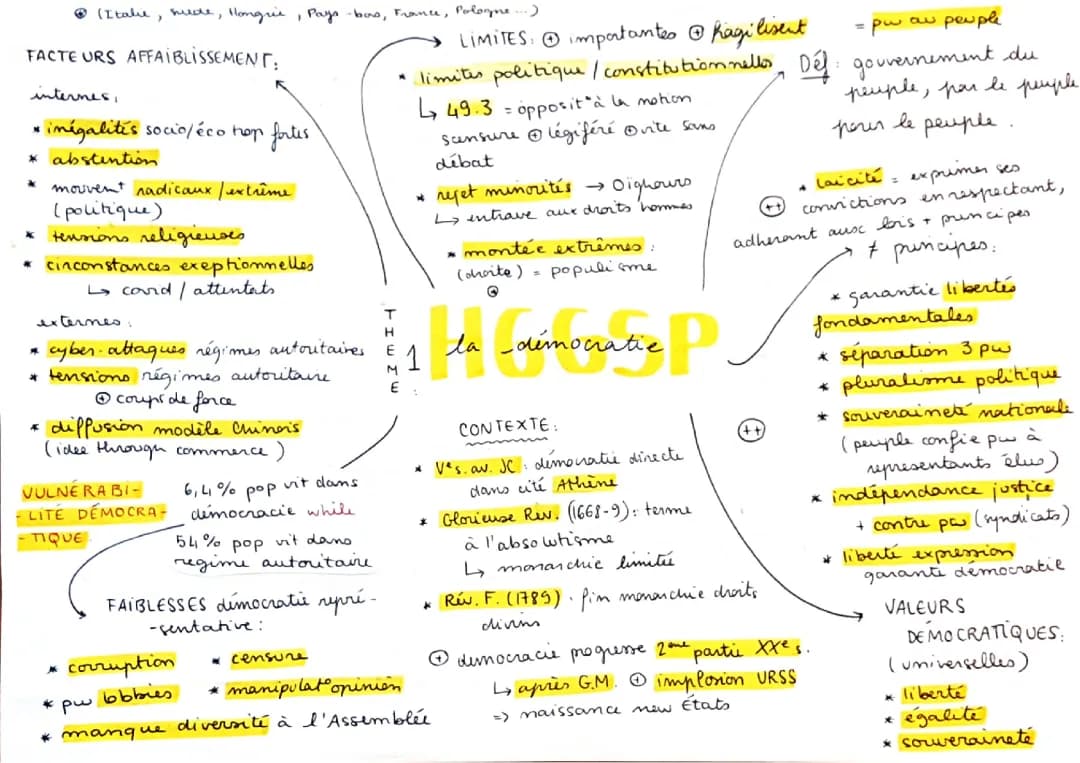 ⊛ (Italie, Suède, Hongrie, Pays-bas, France, Pologne...)
FACTEURS AFFAIBLISSEMENT:
internes,
* inégalités socio/éco trop fortes
* abstention
* mouvent radicaux/extrême
(politique)
* tensions religieuses
* circonstances exeptionnelles
↳ covid / attentats
externes:
* cyber-attaques régimes autoritaires
* tensions régimes autoritaire
⊕ coups de force
* diffusion modèle Chinois
(idee through commerce)
VULNÉRABI-
-LITÉ DÉMOCRA-
-TIQUE
6,4% pop vit dans
démocracie while
54% pop vit dans
regime autoritaire
FAIBLESSES démocratie repré-
-sentative:
* corruption
* censure
* pw lobbies
* manipulat° opinion
* manque diversité à l'Assemblée
LIMITES: ⊕ importantes ⊕ fragilisent
* limites politique / constitutionnelles
↳ 49.3 = opposit° à la motion
scensure ⊕ légiféré ⊕ vite sans
débat
* rejet minorités → Oïghours
↳ entrave aux droits hommes
* montée extrêmes:
(droite) = populisme
⊛
THEME 1:
HGGSP
la démocratie
CONTEXTE:
* Ve s. av. JC: démocratie directe
dans cité Athène
* Glorieuse Rév. (1668-9): terme
à l'absolutisme
↳ monarchie limitée
* Rév. F. (1789). fin monarchie droits
divins
⊕ démocracie progresse 2ème partie XXe s.
↳ après G.M. ⊕ implosion URSS
=> naissance new États
= pw au peuple
Déf: gouvernement du
peuple, par le peuple
pour le peuple.
* laicité = exprimer ses
(++) convictions en respectant,
adherant aux lois + principes
≠ principes:
* garantie libertés
fondamentales
* séparation 3 pw
* pluralisme politique
* souveraineté nationale
(++) (peuple confie pw à
représentants élus)
* indépendance justice
+ contre pw (syndicats)
* liberté expression
garante démocratie
VALEURS
DÉMOCRATIQUES:
(universelles)
* liberté
* égalité
* souveraineté